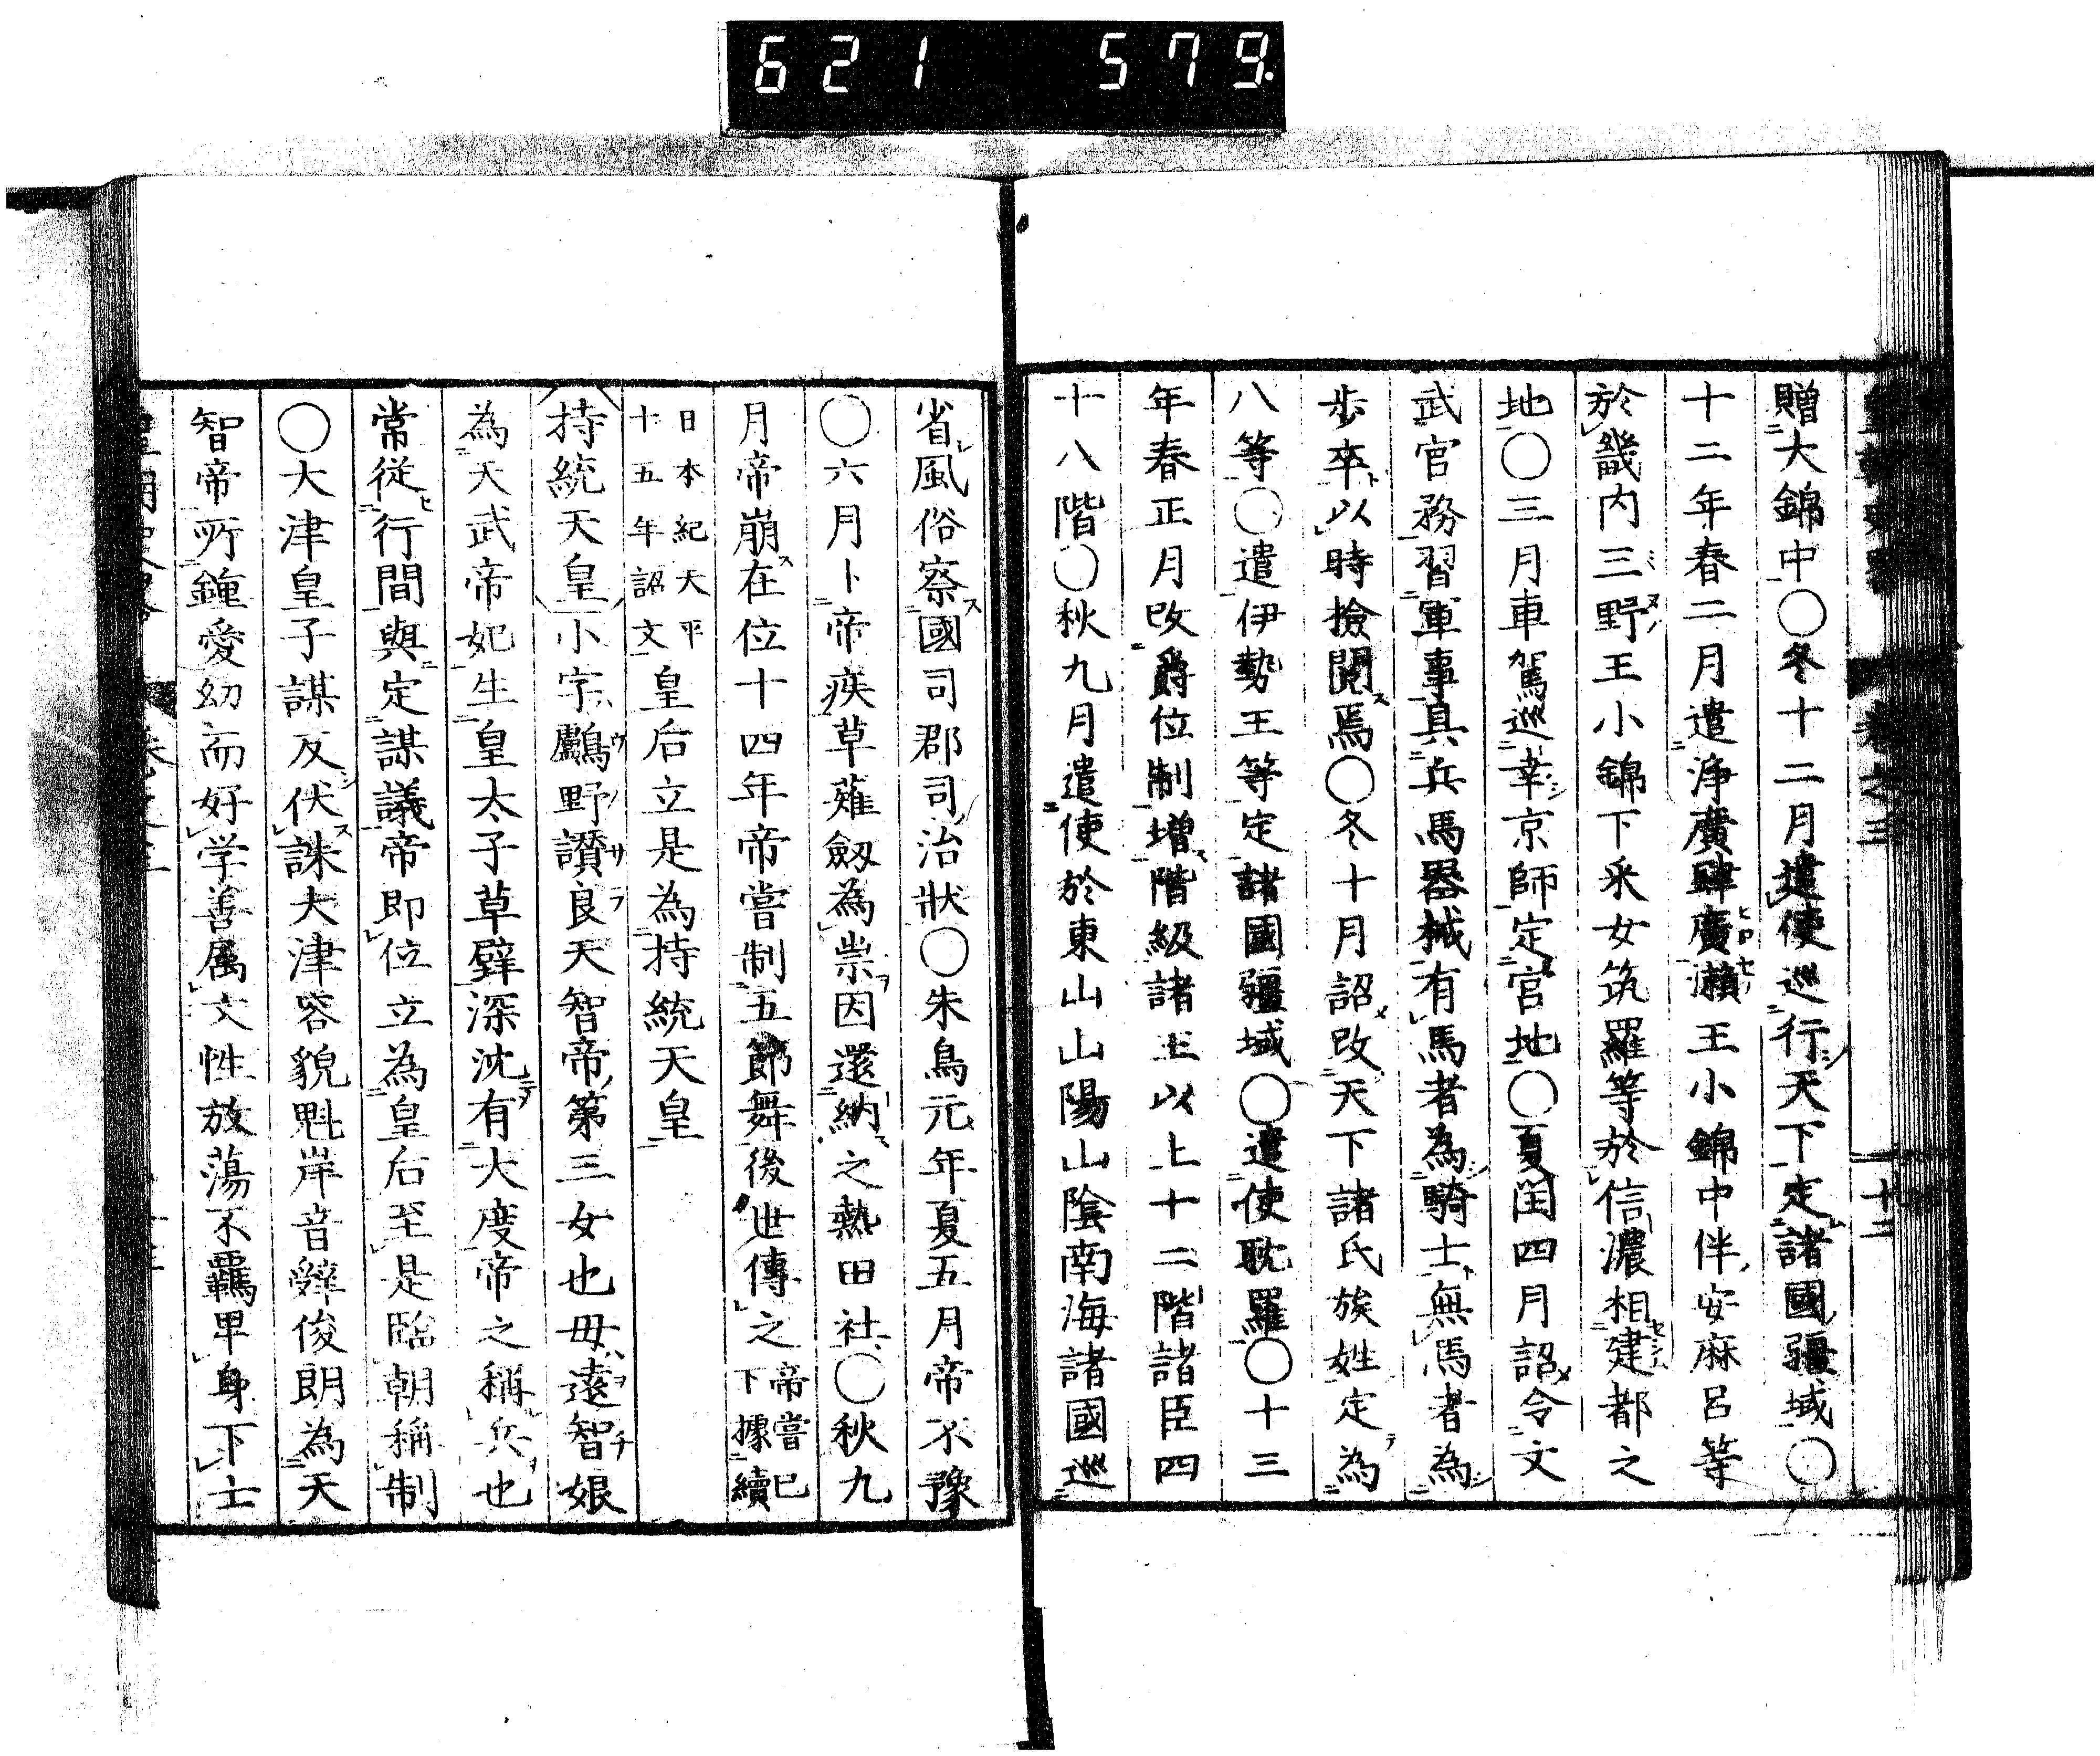 621 579.
贈大錦中○冬十二月遣使巡行天下定諸國疆域○
十二年春二月遣浄廣肆廣瀬王小錦中伴安麻呂等
於畿内三野王小錦下釆女筑羅等於信濃相建都之
地○三月車駕巡幸京師定宮地○夏閏四月詔令文
武官務習軍事具兵馬器械有馬者為騎士無馬者為
歩卒以時撿閲焉○冬十月詔改天下諸氏族姓定為
八等○遣伊勢王等定諸國疆域○遣使耽羅○十三
年春正月改爵位制増階級諸王以上十二階諸臣四
十八階○秋九月遣使於東山山陽山陰南海諸國巡
省風俗察國司郡司治狀○朱鳥元年夏五月帝不豫
○六月卜帝疾草薙劔為祟因還納之熱田社○秋九
月帝崩在位十四年帝嘗制五節舞後世傳之帝嘗已下據續
日本紀天平十五年詔文皇后立是為持統天皇
持統天皇小字鸕野讃良天智帝第三女也毋遠智娘
為天武帝妃生皇太子草壁深沈有大度帝之稱兵也
常從行間與定謀議帝即位立為皇后至是臨朝稱制
○大津皇子謀反伏誅大津容貌魁岸音辭俊朗為天
智帝所鍾愛幼而好学善属文性放蕩不羈卑身下士